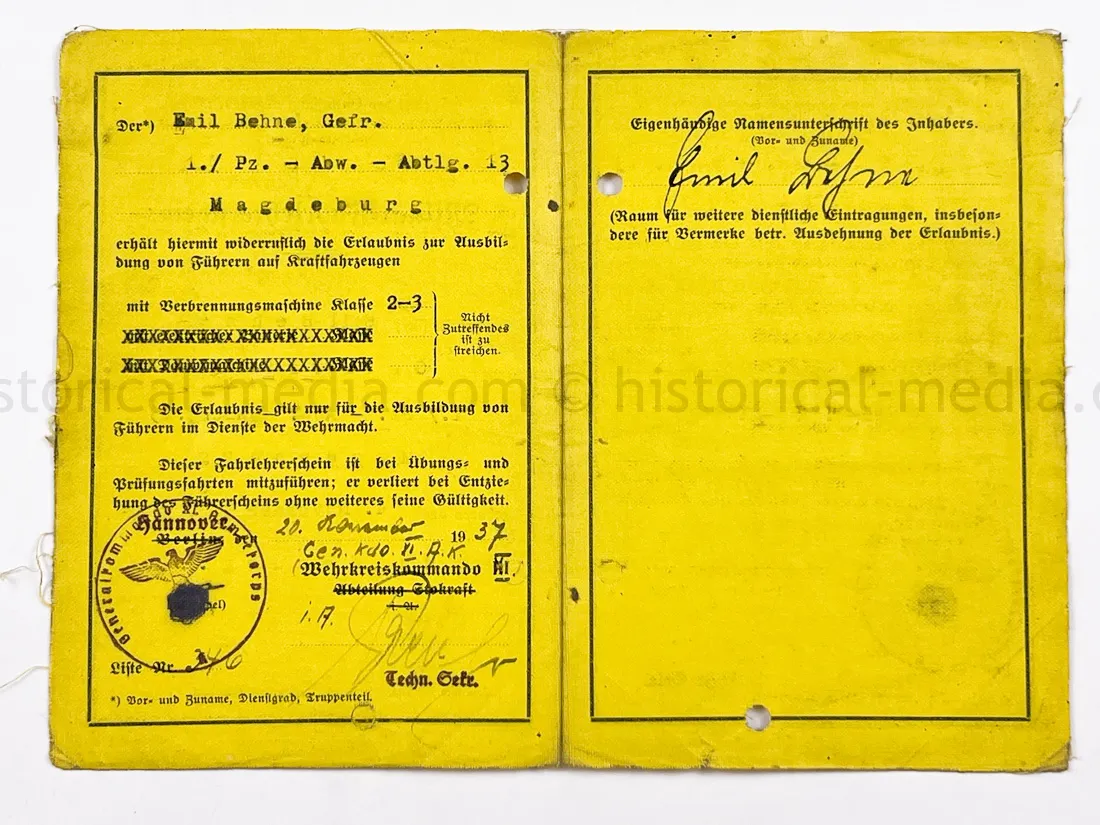 Der*) Emil Behne, Gefr.
1./ Pz. - Abw. - Abtlg. 13
Magdeburg
erhält hiermit widerruflich die Erlaubnis zur Ausbil-
dung von Führern auf Kraftfahrzeugen
mit Verbrennungsmaschine Klasse 2-3
Nicht
Zutreffendes
ist zu
streichen.
Die Erlaubnis gilt nur für die Ausbildung von
Führern im Dienste der Wehrmacht.
Dieser Fahrlehrerschein ist bei Übungs- und
Prüfungsfahrten mitzuführen; er verliert bei Entzie-
hung des Führerscheins ohne weiteres seine Gültigkeit.
Hannover
Berlin, den 20. November 1937
Gen. Kdo. XI. A.K.
(Wehrkreiskommando XI)
Abteilung Stokraft
i. A.
i. A.
Techn. Sekr.
Generalkommando XI. Armeekorps
Liste Nr.
*) Vor- und Zuname, Dienstgrad, Truppenteil.
Eigenhändige Namensunterschrift des Inhabers.
(Vor- und Zuname)
Emil Behne
(Raum für weitere dienstliche Eintragungen, insbeson-
dere für Vermerke betr. Ausdehnung der Erlaubnis.)
historical-media.com © historical-media.c